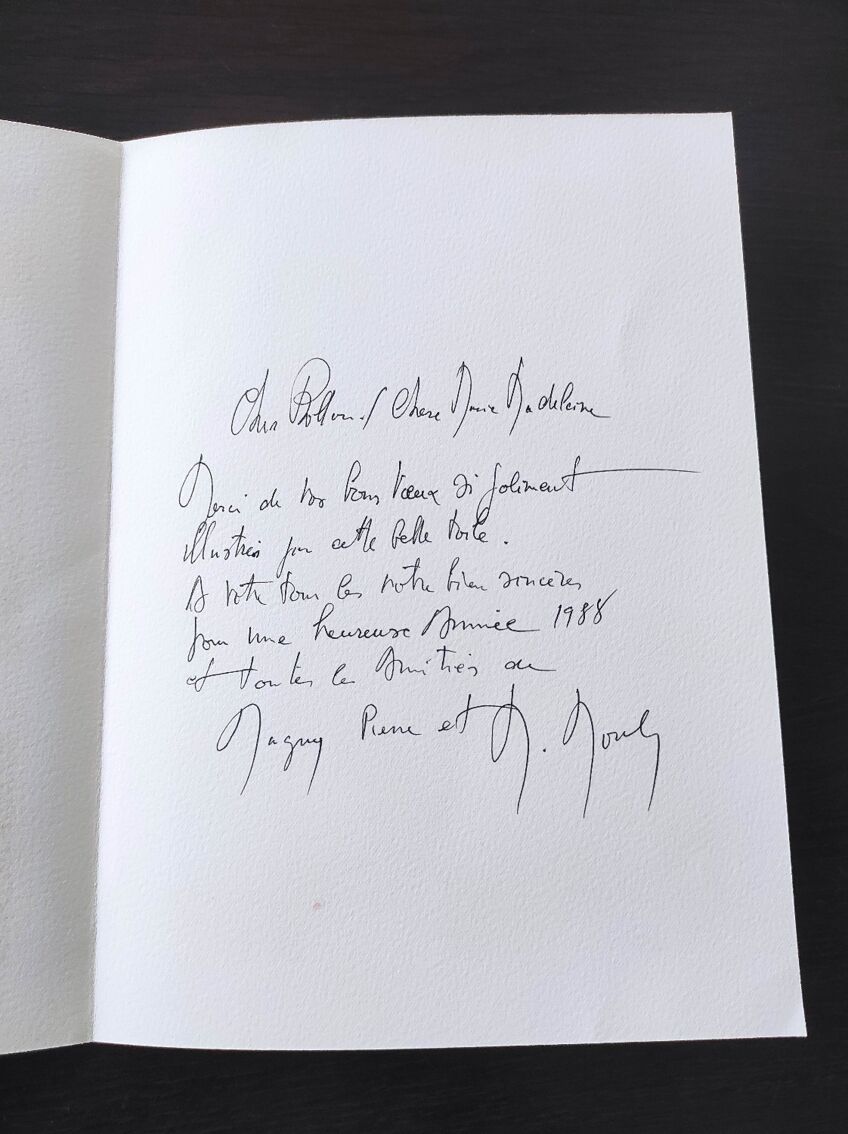 Cher / Chère Marie Madeleine
Merci de vos bons vœux si joliment
illustrés par cette belle toile.
A votre tour les notre bien sincères
pour une heureuse Année 1988
et toutes les Amitiés de
Maguy Pierre et M.